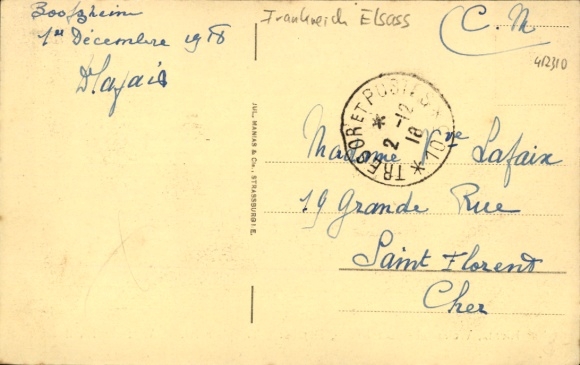 Boofzheim
1er Décembre 1918
Dlafaix
Frankreich Elsass
C. M
412310
TRESOR ET POSTES
* 10 *
2 -12
18
JUL. MANIAS & Cie., STRASSBURG I E.
Madame Vve Lafaix
19 Grande Rue
Saint Florent
Cher